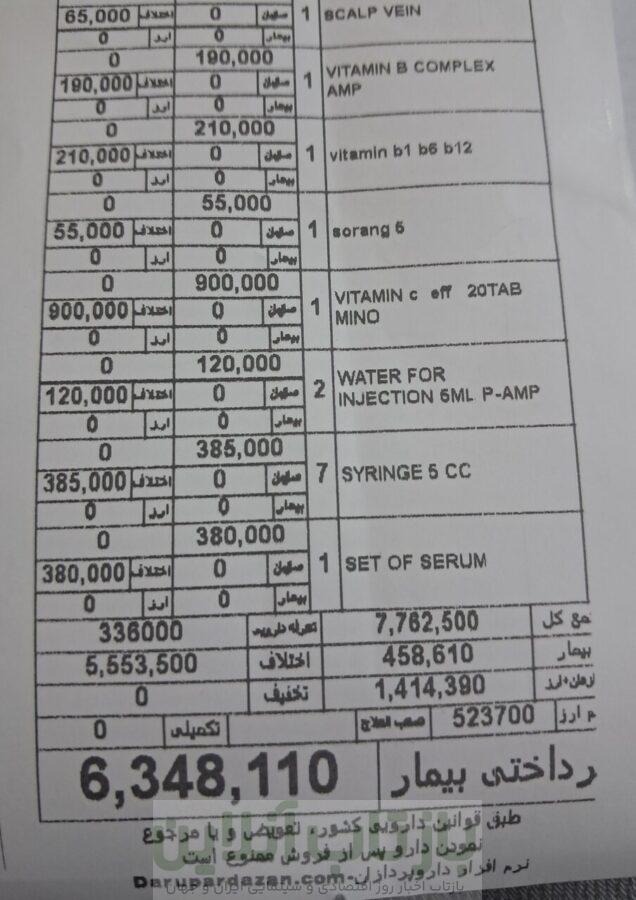 65,000 اختلاف 0 سازمان 1 SCALP VEIN
0 ارز 0 بیمار
0 190,000
190,000 اختلاف 0 سازمان 1 VITAMIN B COMPLEX AMP
0 ارز 0 بیمار
0 210,000
210,000 اختلاف 0 سازمان 1 vitamin b1 b6 b12
0 ارز 0 بیمار
0 55,000
55,000 اختلاف 0 سازمان 1 sorang 5
0 ارز 0 بیمار
0 900,000
900,000 اختلاف 0 سازمان 1 VITAMIN c eff 20TAB MINO
0 ارز 0 بیمار
0 120,000
120,000 اختلاف 0 سازمان 2 WATER FOR INJECTION 5ML P-AMP
0 ارز 0 بیمار
0 385,000
385,000 اختلاف 0 سازمان 7 SYRINGE 5 CC
0 ارز 0 بیمار
0 380,000
380,000 اختلاف 0 سازمان 1 SET OF SERUM
0 ارز 0 بیمار
مع کل 7,762,500 336000
بیمار 458,610 اختلاف 5,553,500
1,414,390 تخفیف 0
م ارز 523700 صعب العلاج تکمیلی 0
رداختی بیمار 6,348,110
طبق قوانین دارویی کشور، تعویض و یا مرجوع
نمودن دارو پس از فروش ممنوع است
نرم افزار داروپردازان-Darupardazan.com
بازتاب آنلاین
بازتاب اخبار روز اقتصادی و سینمایی ایران و جهان